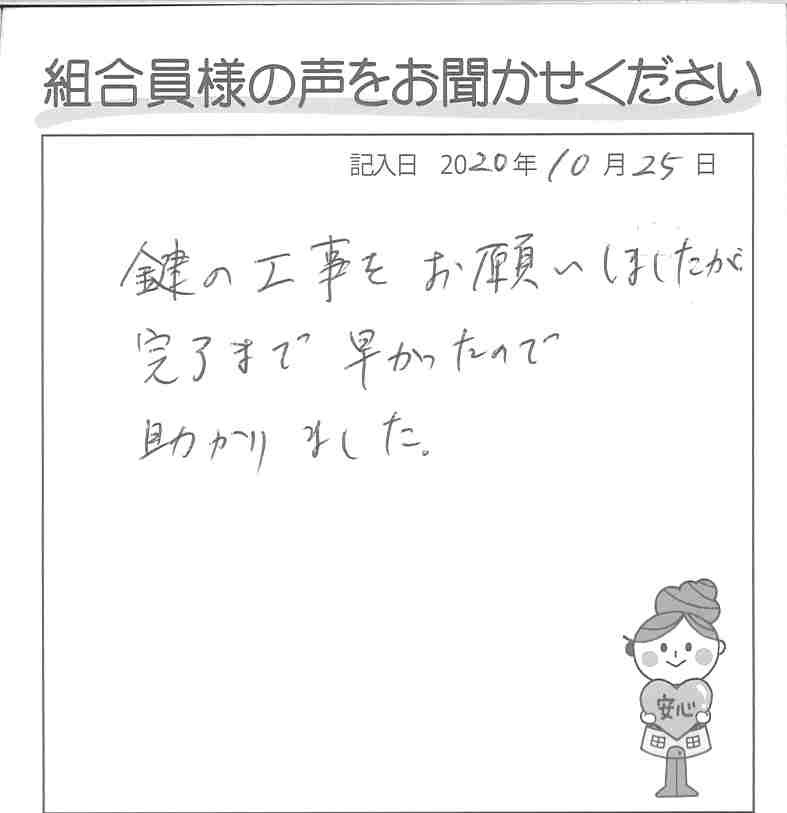 組合員様の声をお聞かせください
記入日 2020年10月25日
鍵の工事をお願いしましたが
完了まで早かったので
助かりました。
安心